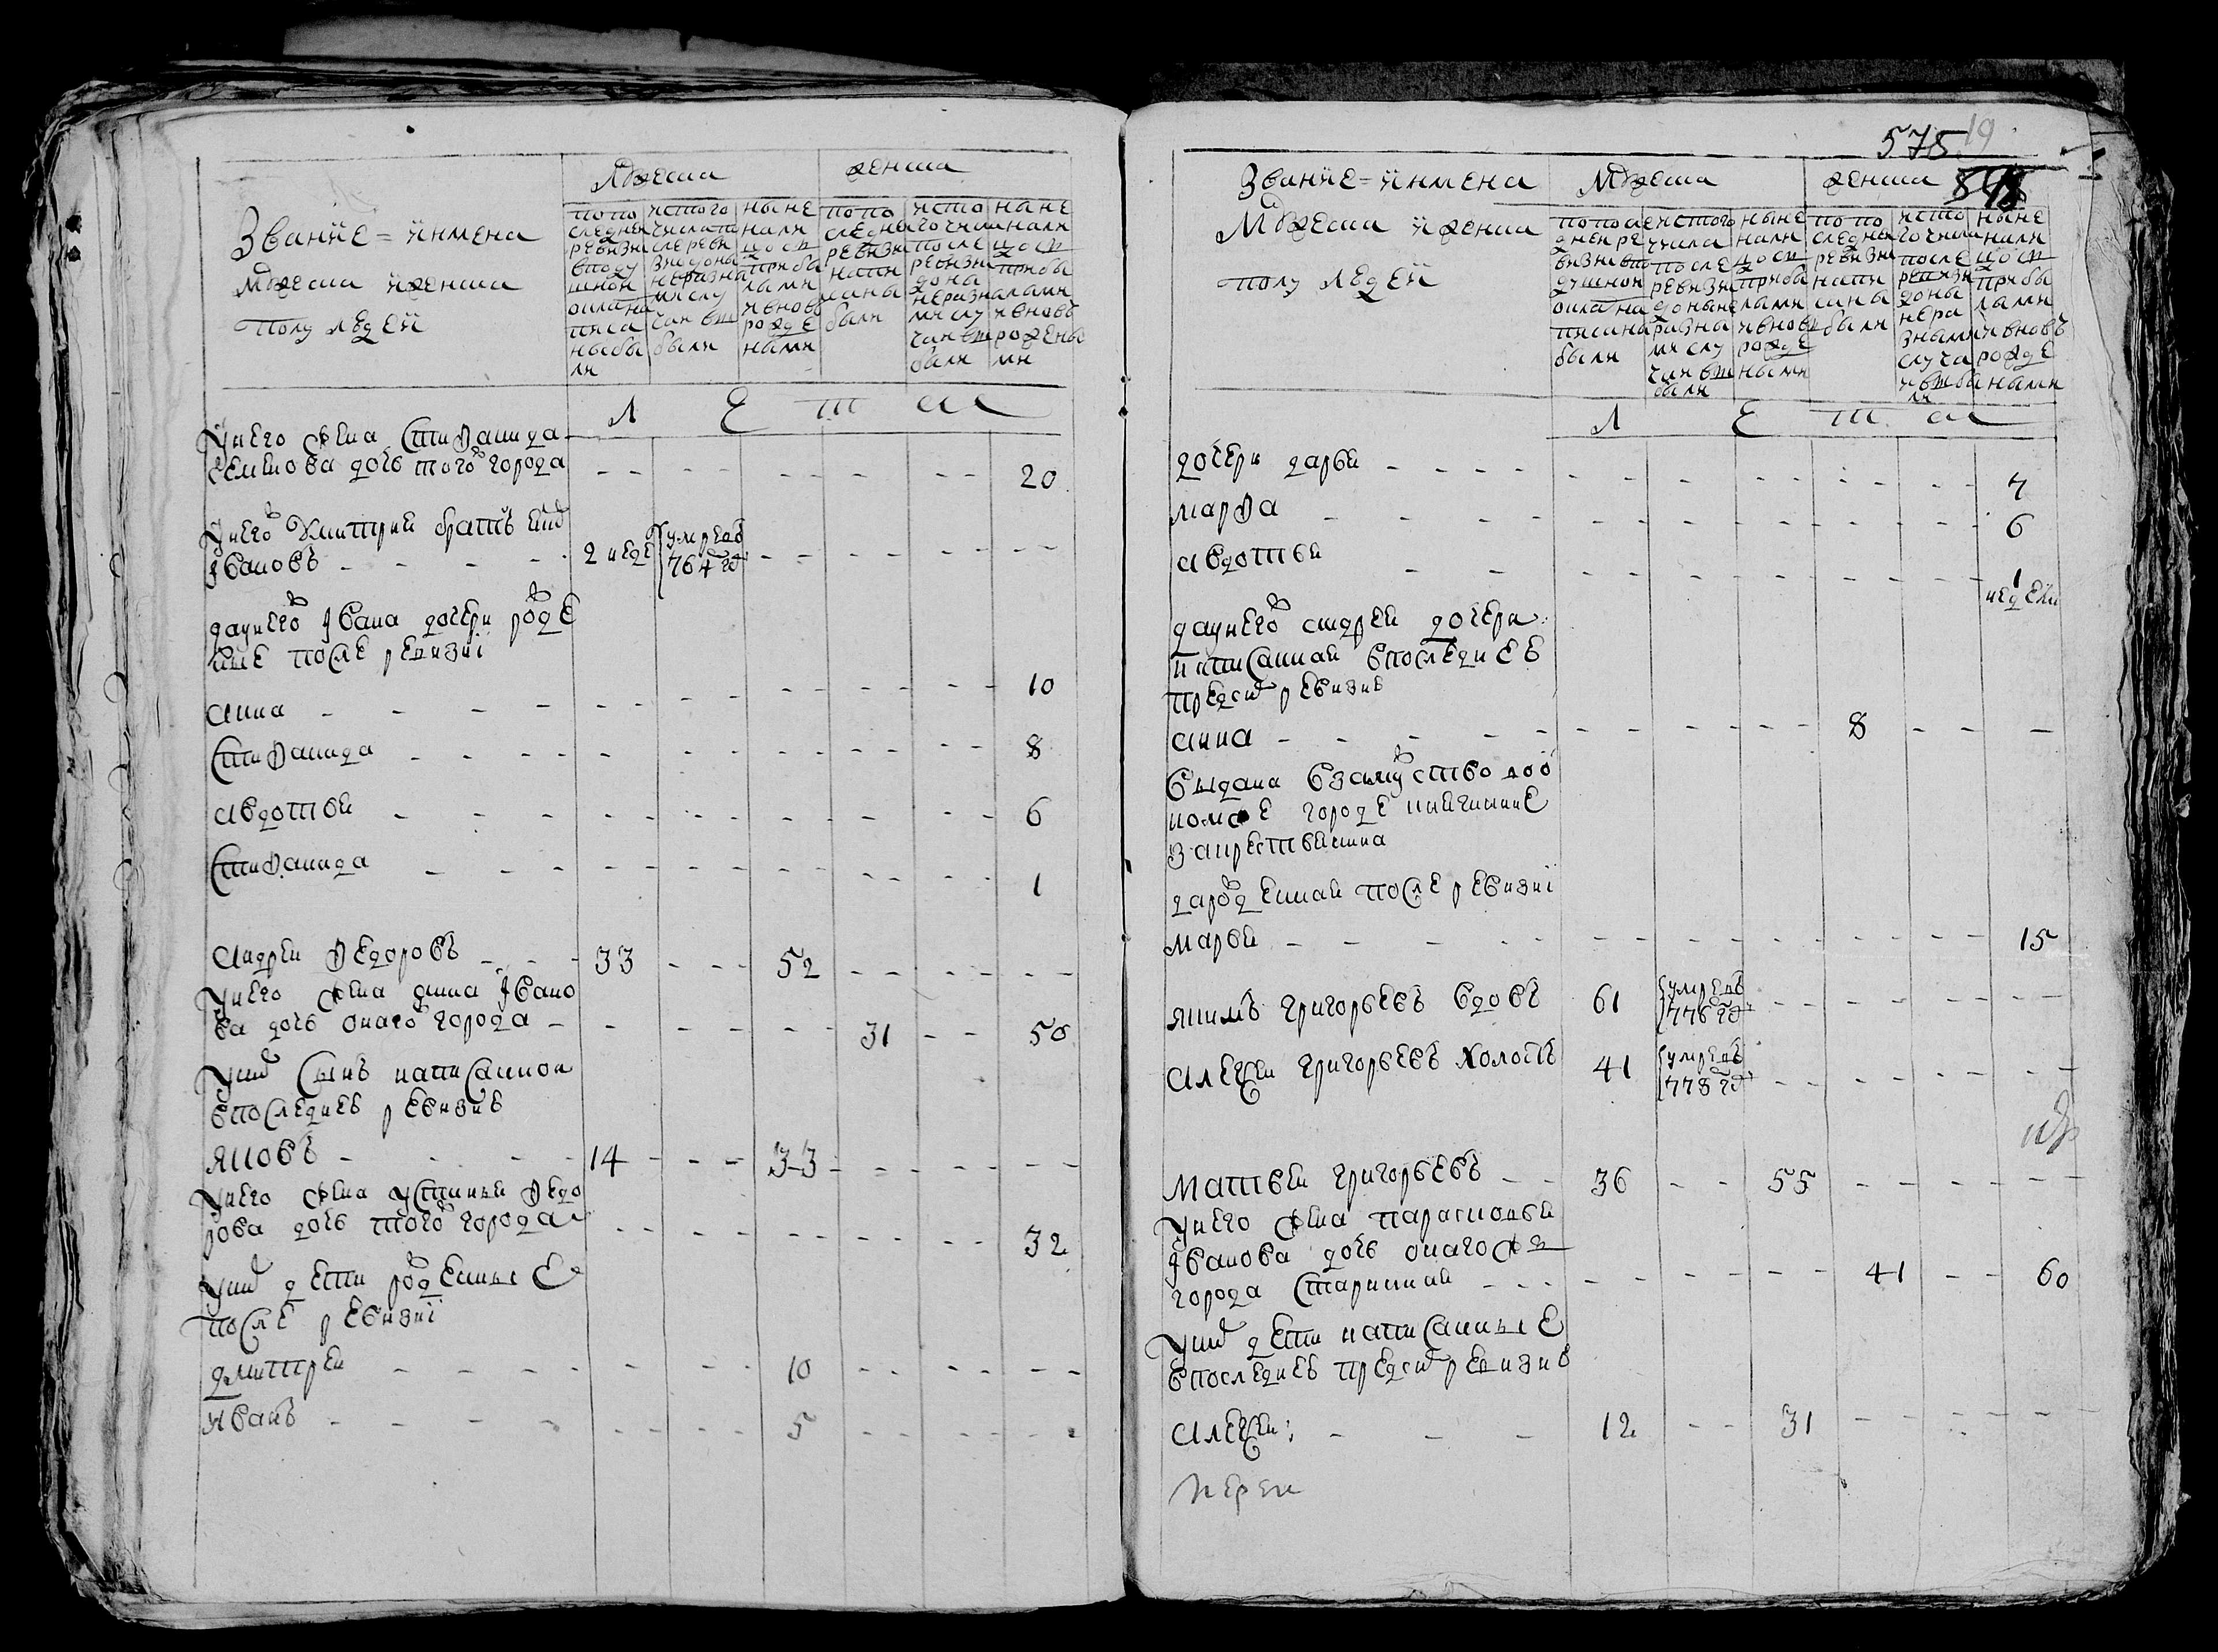 Звание = имена
Мужеска и женска
полу людей
Мужеска
женска
по по
следней
ревизи
в поду
шной
оклад на
писа
ны бы
ли
ис того
числа по
сле реви
зи до ны
не разны
ми слу
чаи вы
были
ныне
нали
цо с
приба
лыми
и вновь
рожде
ными
по по
следней
ревизи
напи
саны
были
ис то
го числа
после
ревизи
до на
не разна
ми слу
чаи
были
нане
нали
цо с
прибы
лами
и вновь
рожены
ми
Л Е т а
У него жена Степанида
Семенова дочь того города - - - - - - 20
У него Дмитрия брат ево
Иванов - - 2 неде умре в 764 го - - - -
да у него Ивана дочери рожде
ные после ревизиі
анна - - - - - - 10
Степанида - - - - - - 8
авдотья - - - - - - 6
Степанида - - - - - - 1
Андрей Федоровъ - - 33 - - 52 - - - -
У него жена анна Ивано
ва дочь онаго города - - - - 31 - - 50
У них сынъ написанной
в последней ревизиі
Яковъ - - 14 - - 33 - - - -
У него жена устинья Федо
рова дочь того города - - - - - - 32
У них дети рожденные
после ревизиі
дмитрей - - - - 10 - - - -
Иванъ - - - - 5 - - - -
575 19
Звание = имена
Мужеска и женска
полу людей
Мужеска
женска
по после
дней ре
визи в по
душной
оклад на
писаны
были
ис того
числа
после
ревизи
до ныне
разны
ми слу
чаи вы
были
ныне
нали
цо с
приба
лами
и вновь
рожде
ными
по по
следней
ревизи
напи
саны
были
ис то
го числа
после
ревизи
доны
не ра
зными
случа
и выбы
ли
ныне
нали
цо с
прибы
лами
и вновь
рожде
ными
Л Е т а
дочери дарья - - - - 7
марфа - - - - 6
авдотья - - - - 1
недели
да у него андрея дочери
написанная в последней
пред сим ревизиі
анна - - - - 8 - - -
выдана в замужство
городе
да рожденная после ревизиі
марья - - - - 15
Якимъ григорьевъ вдовъ 61 умре в 776 го - - - -
Алексей григорьевъ холостъ 41 умре в 778 го - - - -
Матвей григорьевъ - - 36 - - 55 - - - -
У него жена парасковья
Иванова дочь онаго ж
города Старинная - - - - 41 - - 60
У них дети написанные
в последней пред сим ревизиі
Алексей - - 12 - - 31 - - - -